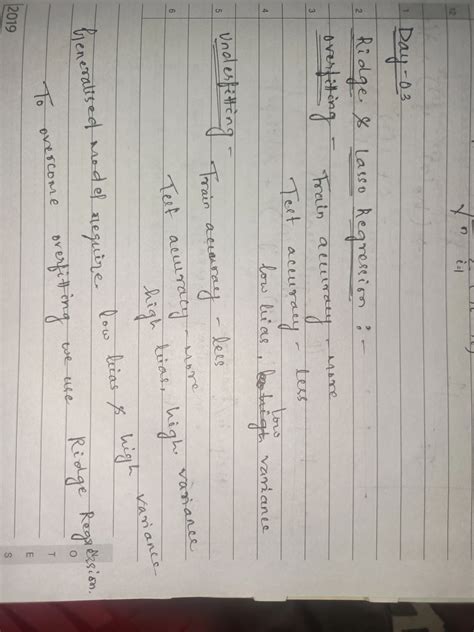 12
γ n i=1
1
Day-03
2
Ridge & Lasso Regression :-
3
Overfitting - Train accuracy - more
Test accuracy - less
4
low
low bias, high variance
5
Underfitting - Train accuracy - less
6
Test accuracy - more
high bias, high variance
Generalised model require low bias & high variance
To overcome overfitting we use Ridge Regression.
2019
O T E S